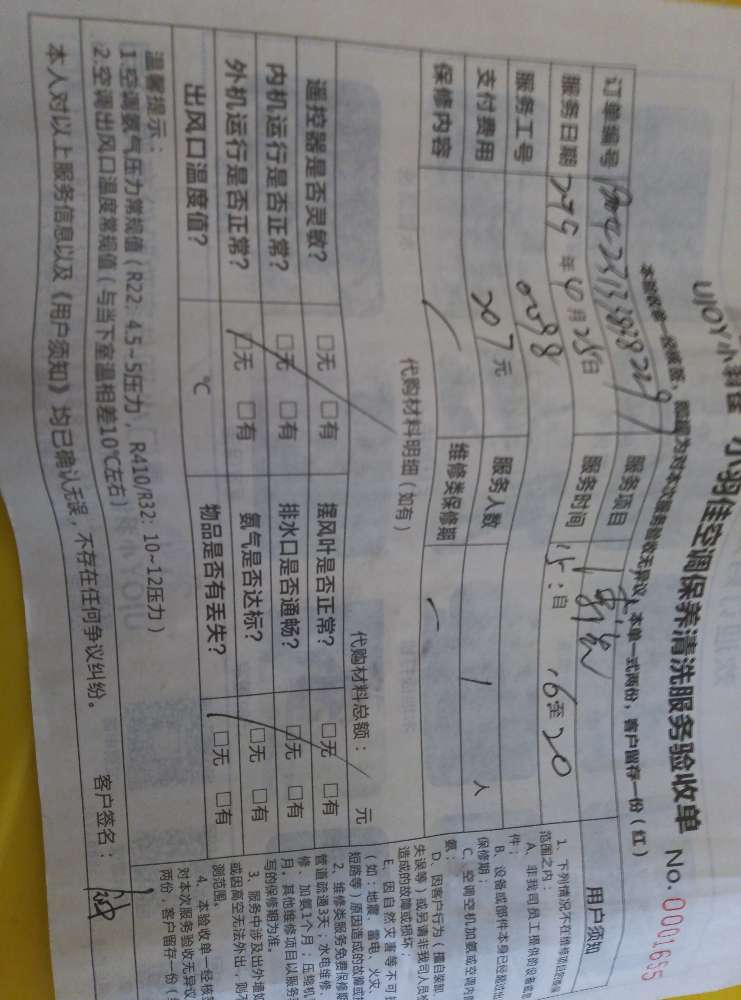 UJOY小羽佳 小羽佳空调保养清洗服务验收单 No. 0001655
本单一式两份，客户留存一份（红）
订单编号
服务项目
用户须知
服务日期 年 月 25日
服务时间 15: 自 16至20
服务工号 0098
支付费用 207元
服务人数 1 人
保修内容 /
维修类保修期 /
代购材料明细（如有）
代购材料总额： 元
遥控器是否灵敏？ □无 □有
摆风叶是否正常？ □无 □有
内机运行是否正常？ □无 □有
排水口是否通畅？ □无 □有
外机运行是否正常？ □无 □有
氨气是否达标？ □无 □有
出风口温度值？ ℃
物品是否有丢失？ □无 □有
温馨提示：
1.空调氨气压力常规值（R22：4.5~5压力，R410/R32：10~12压力）
2.空调出风口温度常规值（与当下室温相差10℃左右）
本人对以上服务信息以及《用户须知》均已确认无误，不存在任何争议纠纷。
客户签名：
1、下列情况不在维修项目的保修
范围之内：
A、非我司员工提供的设备或
件；
B、设备或部件本身已经超过出
保修期；
C、空调空机加氨或空调内
氨；
D、因客户行为（擅自装卸、
失误等）或另请非我司人员
造成的故障或损坏；
E、因自然灾害等不可
（如：地震、雷电、火灾、
短路等）原因造成的故障或
2、维修类服务免费保修期
管道疏通3天；水电维修、
修、加氨1个月；压缩机
月。其他维修项目以服务
写的保修期为准。
3、服务中涉及出外墙
或因高空无法外出，则
测范围。
4、本验收单一经核
对本次服务验收无异议
两份，客户留存一份（